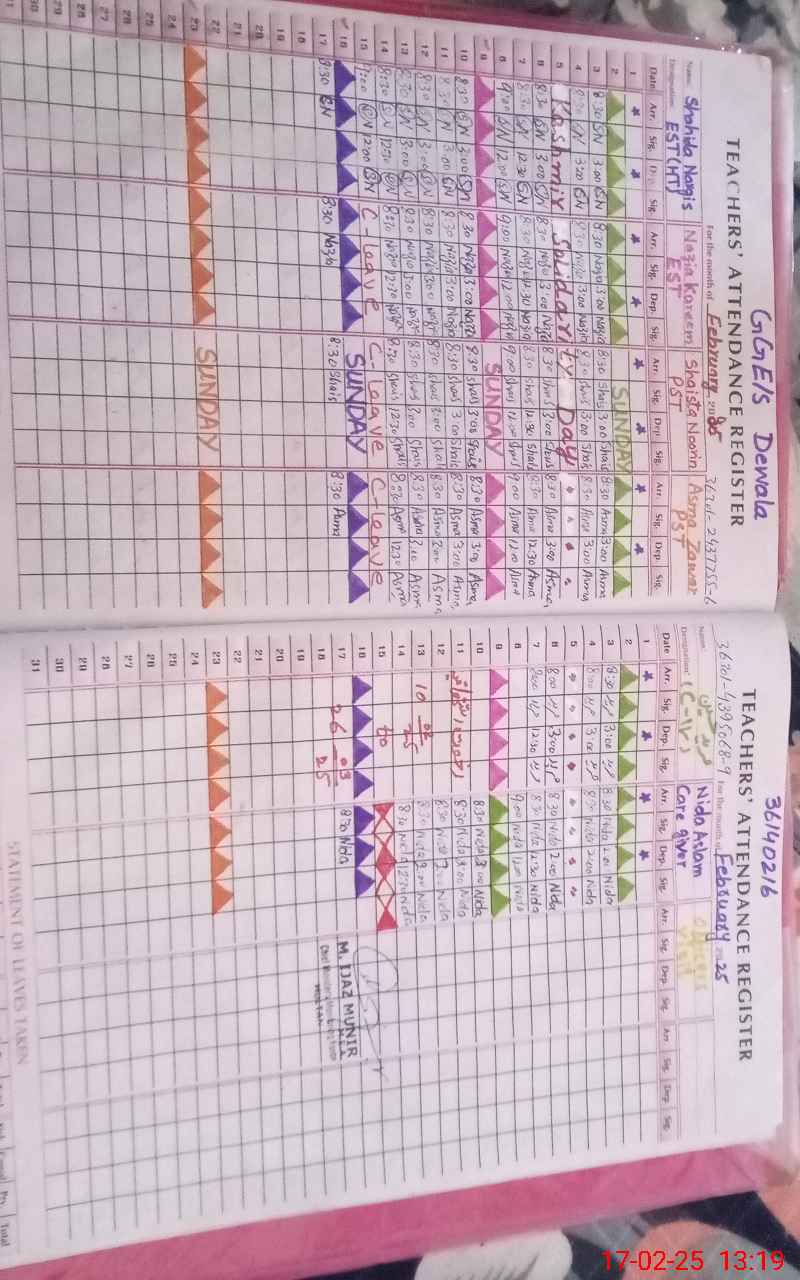 GGE/S Dewala
TEACHERS' ATTENDANCE REGISTER
For the month of February 2025
36301-2437755-6
Name: Shahida Nargis Nazia Kareem Shaista Noorin Asma Zawar
Designation: EST(HT) EST PST PST
Date Arr. Sig. Dep. Sig. Arr. Sig. Dep. Sig. Arr. Sig. Dep. Sig. Arr. Sig. Dep. Sig.
1
2 SUNDAY
3 8:30 SN 3:00 SN 8:30 Nazia 3:00 Nazia 8:30 Shais 3:00 Shais 8:30 Asma 3:00 Asma
4 8:30 SN 3:00 SN 8:30 Nazia 3:00 Nazia 8:30 Shais 3:00 Shais 8:30 Asma 3:00 Asma
5 Kashmir Solidarity Day
6 8:30 SN 3:00 SN 8:30 Nazia 3:00 Nazia 8:30 Shais 3:00 Shais 8:30 Asma 3:00 Asma
7 8:30 SN 12:30 SN 8:30 Nazia 12:30 Nazia 8:30 Shais 12:30 Shais 8:30 Asma 12:30 Asma
8 9:00 SN 12:00 SN 9:00 Nazia 12:00 Nazia 9:00 Shais 12:00 Shais 9:00 Asma 12:00 Asma
9 SUNDAY
10 8:30 SN 3:00 SN 8:30 Nazia 3:00 Nazia 8:30 Shais 3:00 Shais 8:30 Asma 3:00 Asma
11 8:30 SN 3:00 SN 8:30 Nazia 3:00 Nazia 8:30 Shais 3:00 Shais 8:30 Asma 3:00 Asma
12 8:30 SN 3:00 SN 8:30 Nazia 3:00 Nazia 8:30 Shais 3:00 Shais 8:30 Asma 3:00 Asma
13 8:30 SN 3:00 SN 8:30 Nazia 3:00 Nazia 8:30 Shais 3:00 Shais 8:30 Asma 3:00 Asma
14 8:30 SN 12:30 SN 8:30 Nazia 12:30 Nazia 8:30 Shais 12:30 Shais 8:30 Asma 12:30 Asma
15 9:00 SN 12:00 SN C-leave C-leave C-leave
16 SUNDAY
17 8:30 SN 8:30 Nazia 8:30 Shais 8:30 Asma
18
19
20
21
22
23 SUNDAY
24
25
26
27
28
29
30
31
36140216
TEACHERS' ATTENDANCE REGISTER
For the month of February 2025
36301-4395068-9
Name: Nida Aslam Officers
Designation: Care giver Visit
Date Arr. Sig. Dep. Sig. Arr. Sig. Dep. Sig. Arr. Sig. Dep. Sig. Arr. Sig. Dep. Sig.
1
2
3 8:30 3:00 8:30 Nida 2:00 Nida
4 8:00 3:00 8:30 Nida 2:00 Nida
5
6 8:00 3:00 8:30 Nida 2:00 Nida
7 8:00 12:30 8:30 Nida 12:30 Nida
8 9:00 Nida 12:00 Nida
9
10 8:30 Nida 3:00 Nida
11 8:30 Nida 3:00 Nida
12 8:30 Nida 3:00 Nida
13 10 02 25 8:30 Nida 3:00 Nida
14 8:30 Nida 12:30 Nida
15 to
16
17 26 03 25 8:30 Nida
M. IJAZ MUNIR
18
19
20
21
22
23
24
25
26
27
28
29
30
31
STATEMENT OF LEAVES TAKEN
Total
17-02-25 13:19